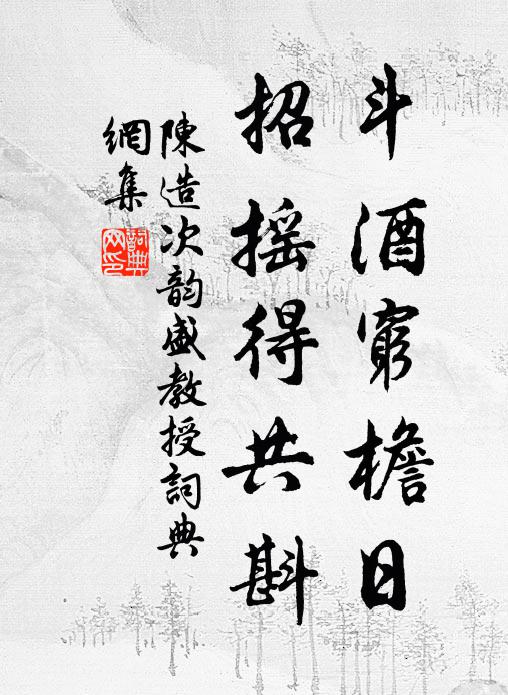 斗酒窮檐日
招摇得共斟
陳造次韵盛教授詞典
網集
詞典網印